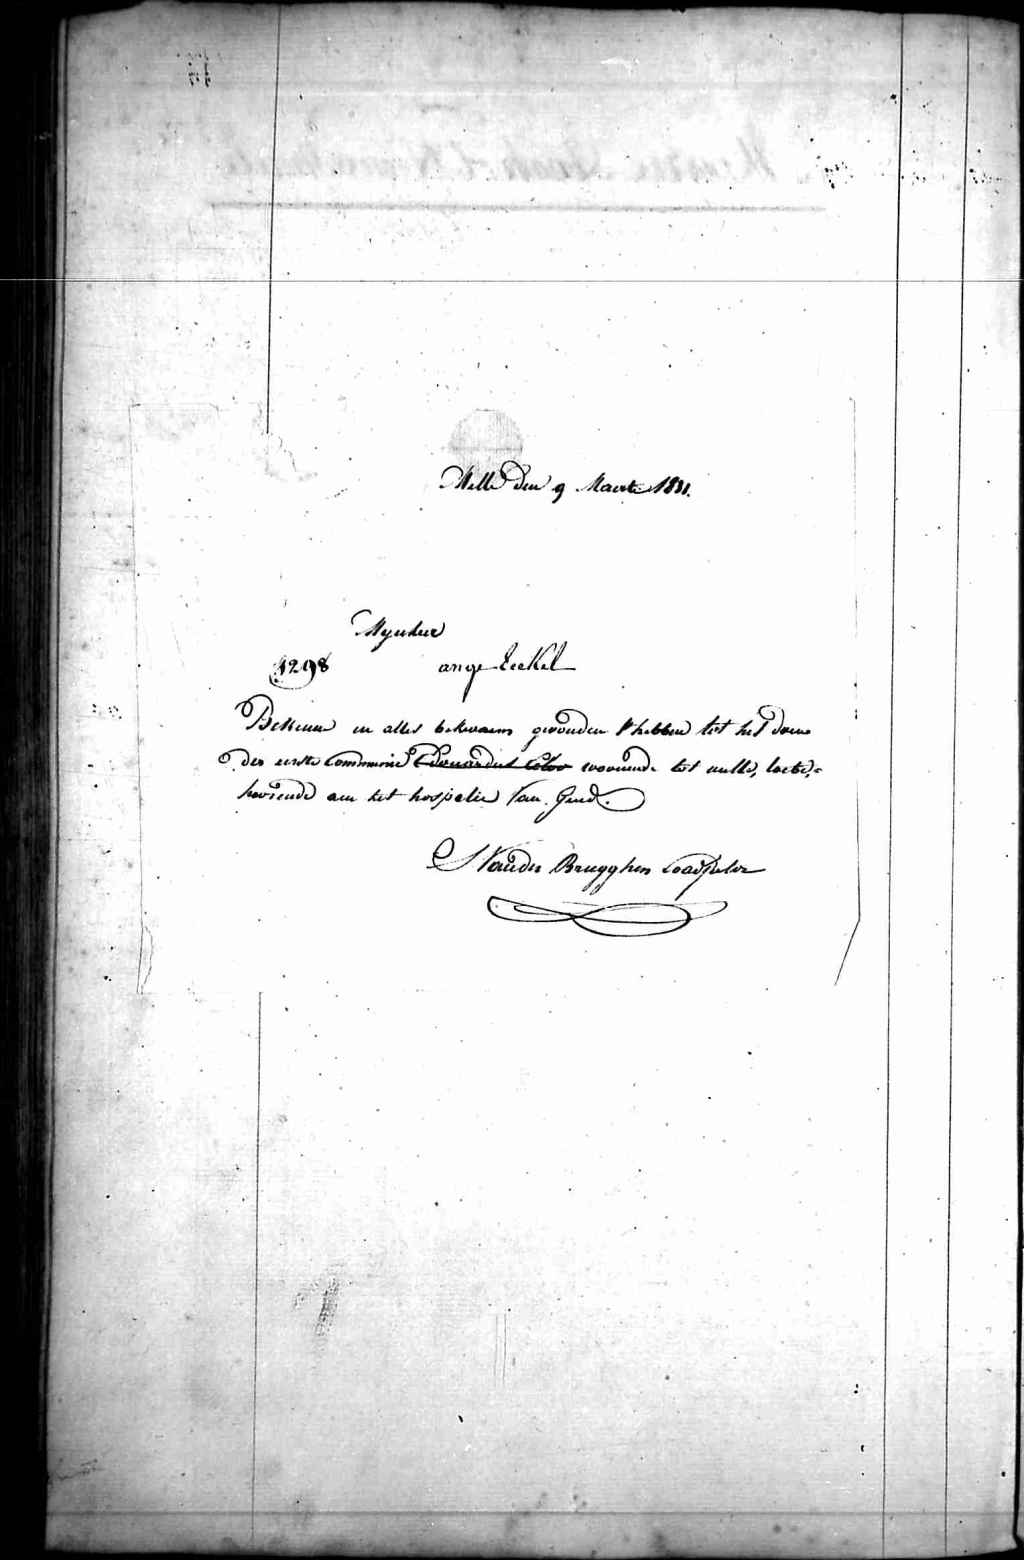 Melle den 9 Maerte 1831.
Mynheer
4298 ange Eeckel
Bekenne en alles bekwaem gevonden t'hebben tot het doen
der eerste Communie Edouardus woonende tot melle, toebe,=
hoorende aen het hospitie Van Gend.
Vander Brugghen Coadjutor